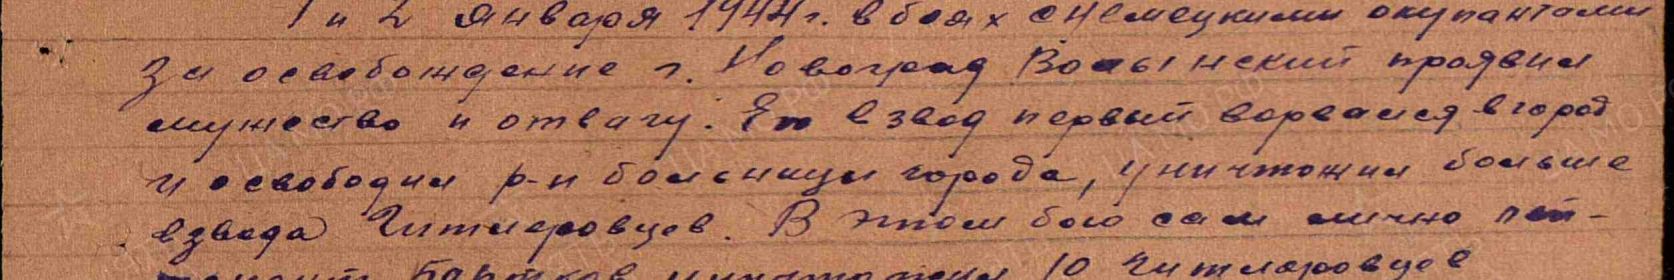 1 и 2 января 1944 г. в боях с немецкими окупантами
за освобождение г. Новоград Волынский проявил
мужество и отвагу. Его взвод первый ворвался в город
и освободил р-н больницы города, уничтожил больше
взвода Гитлеровцев. В этом бою сам лично лей-
тенант Бортков уничтожил 10 гитлеровцев